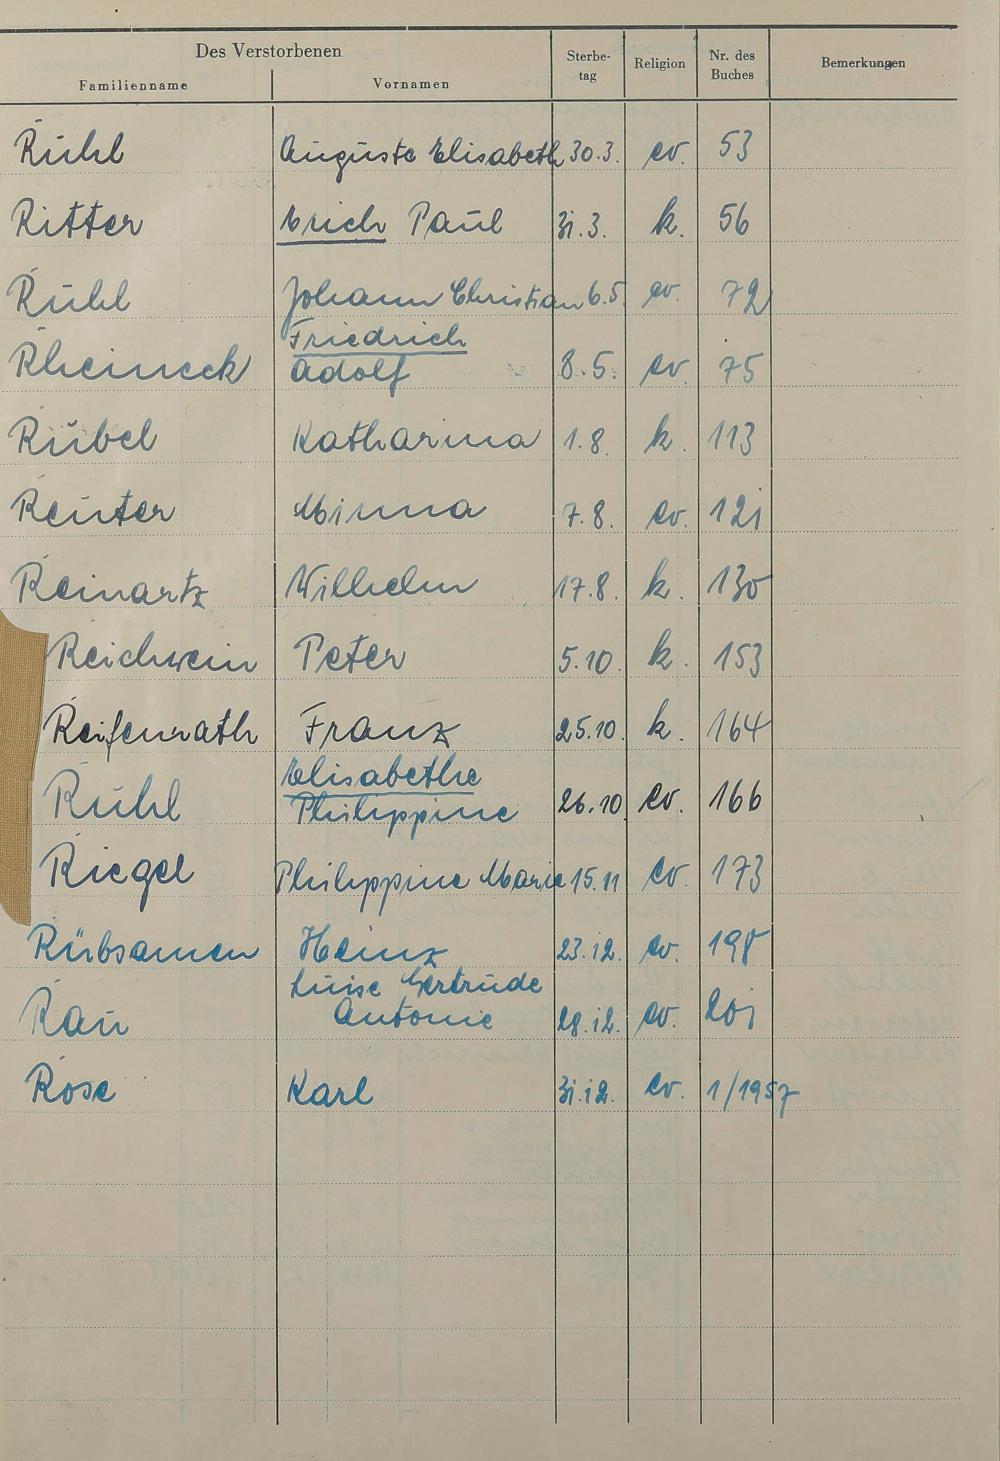 Des Verstorbenen
Familienname Vornamen Sterbe-tag Religion Nr. des Buches Bemerkungen
Rühl Auguste Elisabeth 30.3. ev. 53
Ritter Erich Paul 31.3. k. 56
Rühl Johann Christian 6.5. ev. 72
Friedrich
Rheineck Adolf 8.5. ev. 75
Rübel Katharina 1.8. k. 113
Reuter Minna 7.8. ev. 121
Reinartz Wilhelm 17.8. k. 130
Reichwein Peter 5.10. k. 153
Reifenrath Franz 25.10. k. 164
Elisabethe
Rühl Philippine 26.10. ev. 166
Riegel Philippine Marie 15.11 ev. 173
Rübsamen Heinz 23.12. ev. 198
Luise Gertrude
Rau Antonie 28.12. ev. 201
Rose Karl 31.12. ev. 1/1957